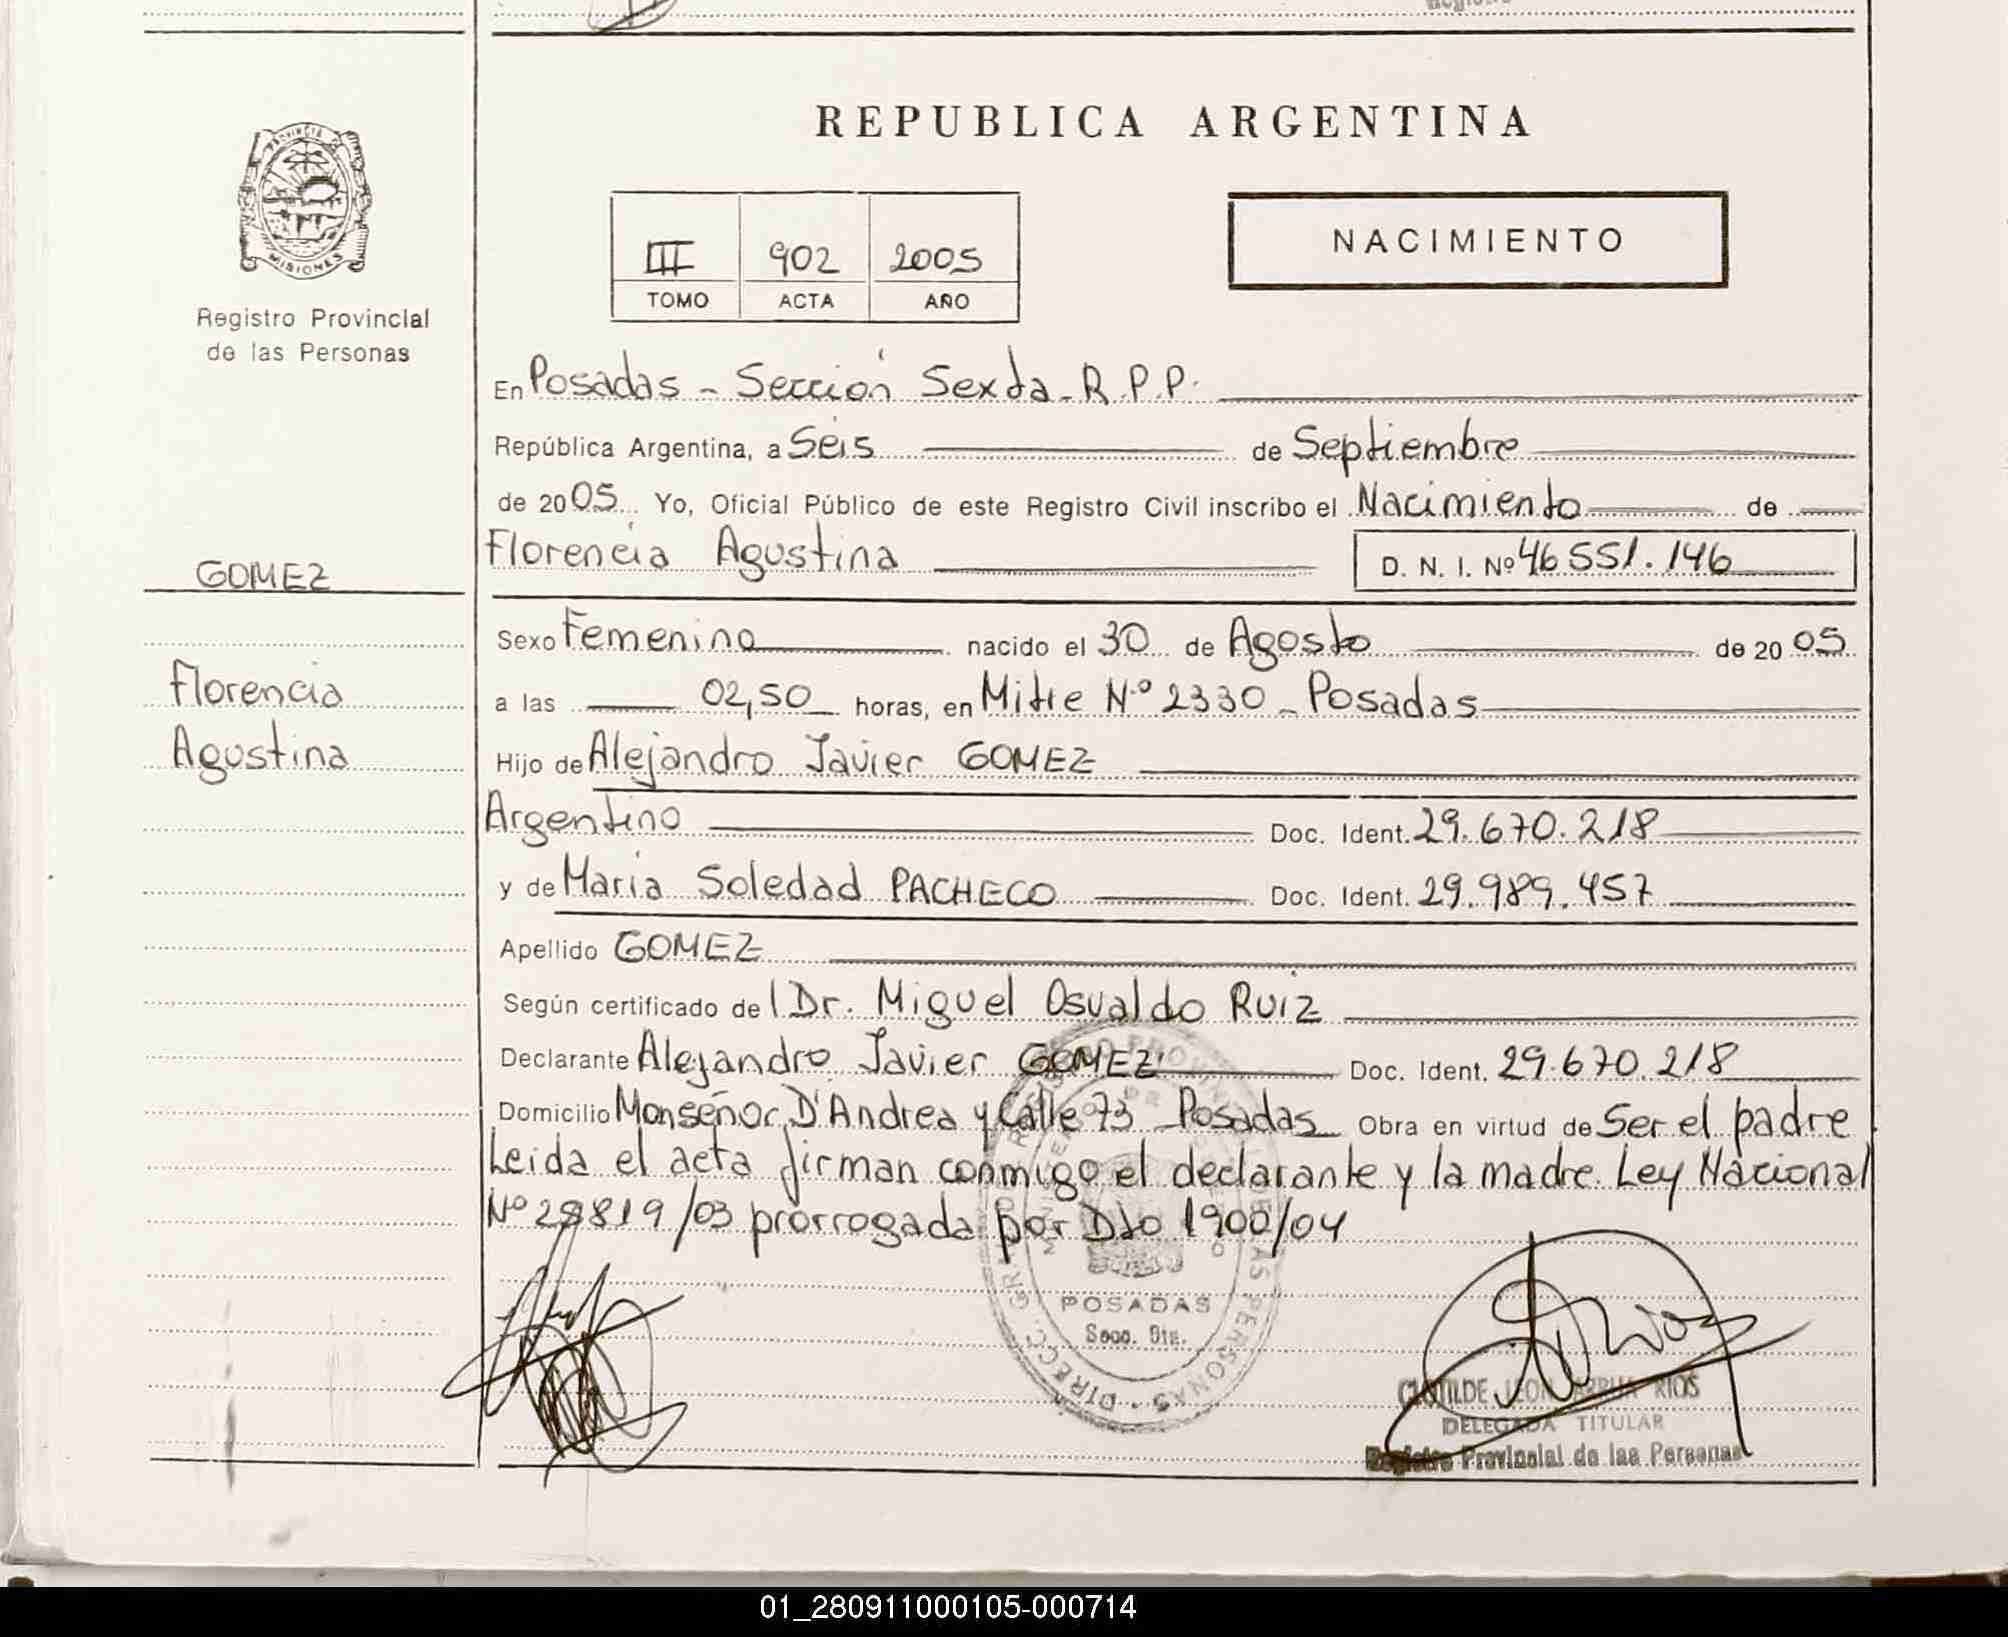 REPUBLICA ARGENTINA
PROVINCIA
MISIONES
Registro Provincial
de las Personas
III 902 2005
TOMO ACTA AÑO
NACIMIENTO
En Posadas - Sección Sexta - R.P.P.
República Argentina, a Seis de Septiembre
de 2005 Yo, Oficial Público de este Registro Civil inscribo el Nacimiento de
Florencia Agustina D. N. I. Nº 46 551.146
GOMEZ
Sexo Femenino nacido el 30 de Agosto de 2005
Florencia
a las 02,50 horas, en Mitre Nº 2330 - Posadas
Agustina
Hijo de Alejandro Javier GOMEZ
Argentino Doc. Ident. 29.670.218
y de Maria Soledad PACHECO Doc. Ident. 29.989.457
Apellido GOMEZ
Según certificado del Dr. Miguel Osvaldo Ruiz
Declarante Alejandro Javier GOMEZ Doc. Ident. 29.670.218
Domicilio Monseñor D'Andrea y Calle 73 Posadas Obra en virtud de Ser el padre
Leida el acta firman conmigo el declarante y la madre. Ley Nacional
Nº 25819/03 prorrogada por Dto 1900/04
POSADAS
Secc. 6ta.
CLOTILDE LEON ARRUA RIOS
DELEGADA TITULAR
Registro Provincial de las Personas
01_280911000105-000714